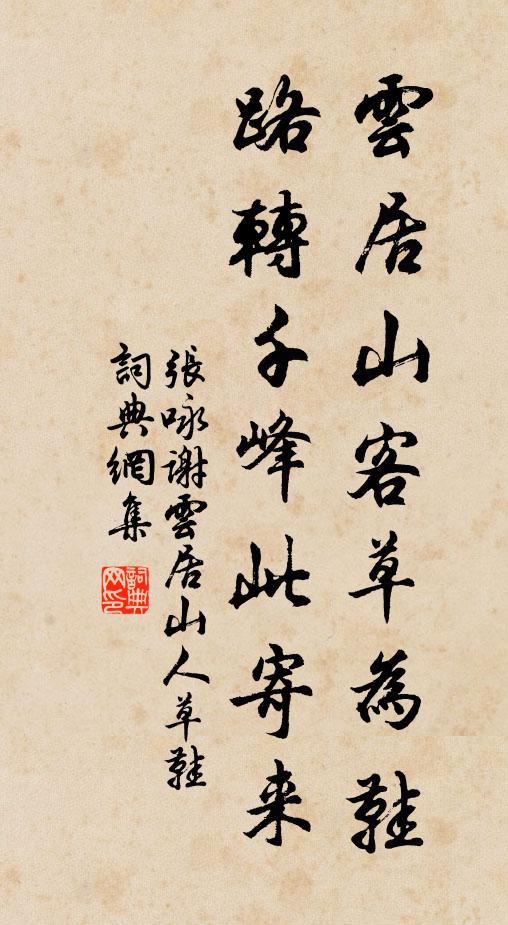 雲居山客草為鞋
路轉千峰此寄来
張咏謝雲居山人草鞋
詞典網集
詞典网印